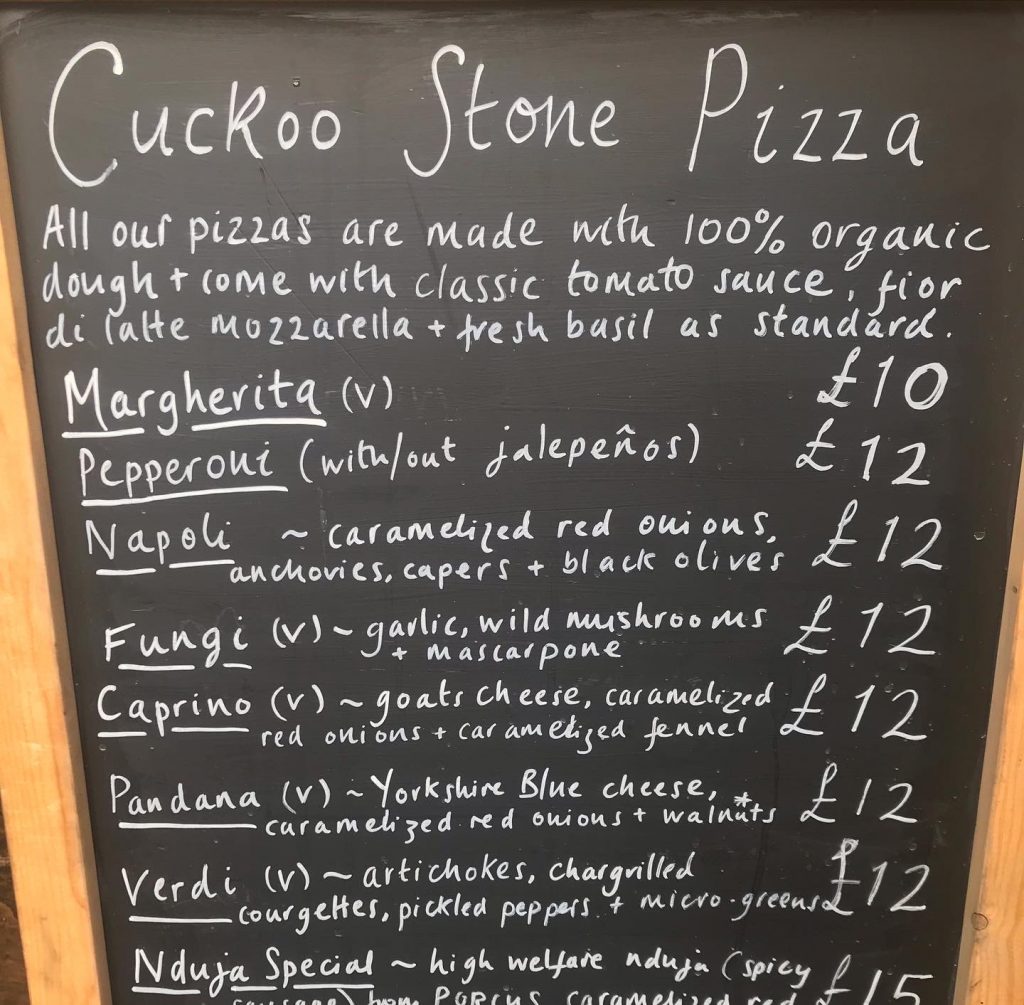 Cuckoo Stone Pizza
All our pizzas are made with 100% organic
dough + come with classic tomato sauce, fior
di latte mozzarella + fresh basil as standard.
Margherita (v) £10
Pepperoni (with/out jalepeños) £12
Napoli ~ caramelized red onions, £12
anchovies, capers + black olives
Fungi (v) ~ garlic, wild mushrooms £12
+ mascarpone
Caprino (v) ~ goats cheese, caramelized £12
red onions + caramelized fennel
Pandana (v) ~ Yorkshire Blue cheese, £12
caramelized red onions + walnuts*
Verdi (v) ~ artichokes, chargrilled £12
courgettes, pickled peppers + micro-greens
Nduja Special ~ high welfare nduja (spicy £15
sausage) from PORCUS, caramelized red